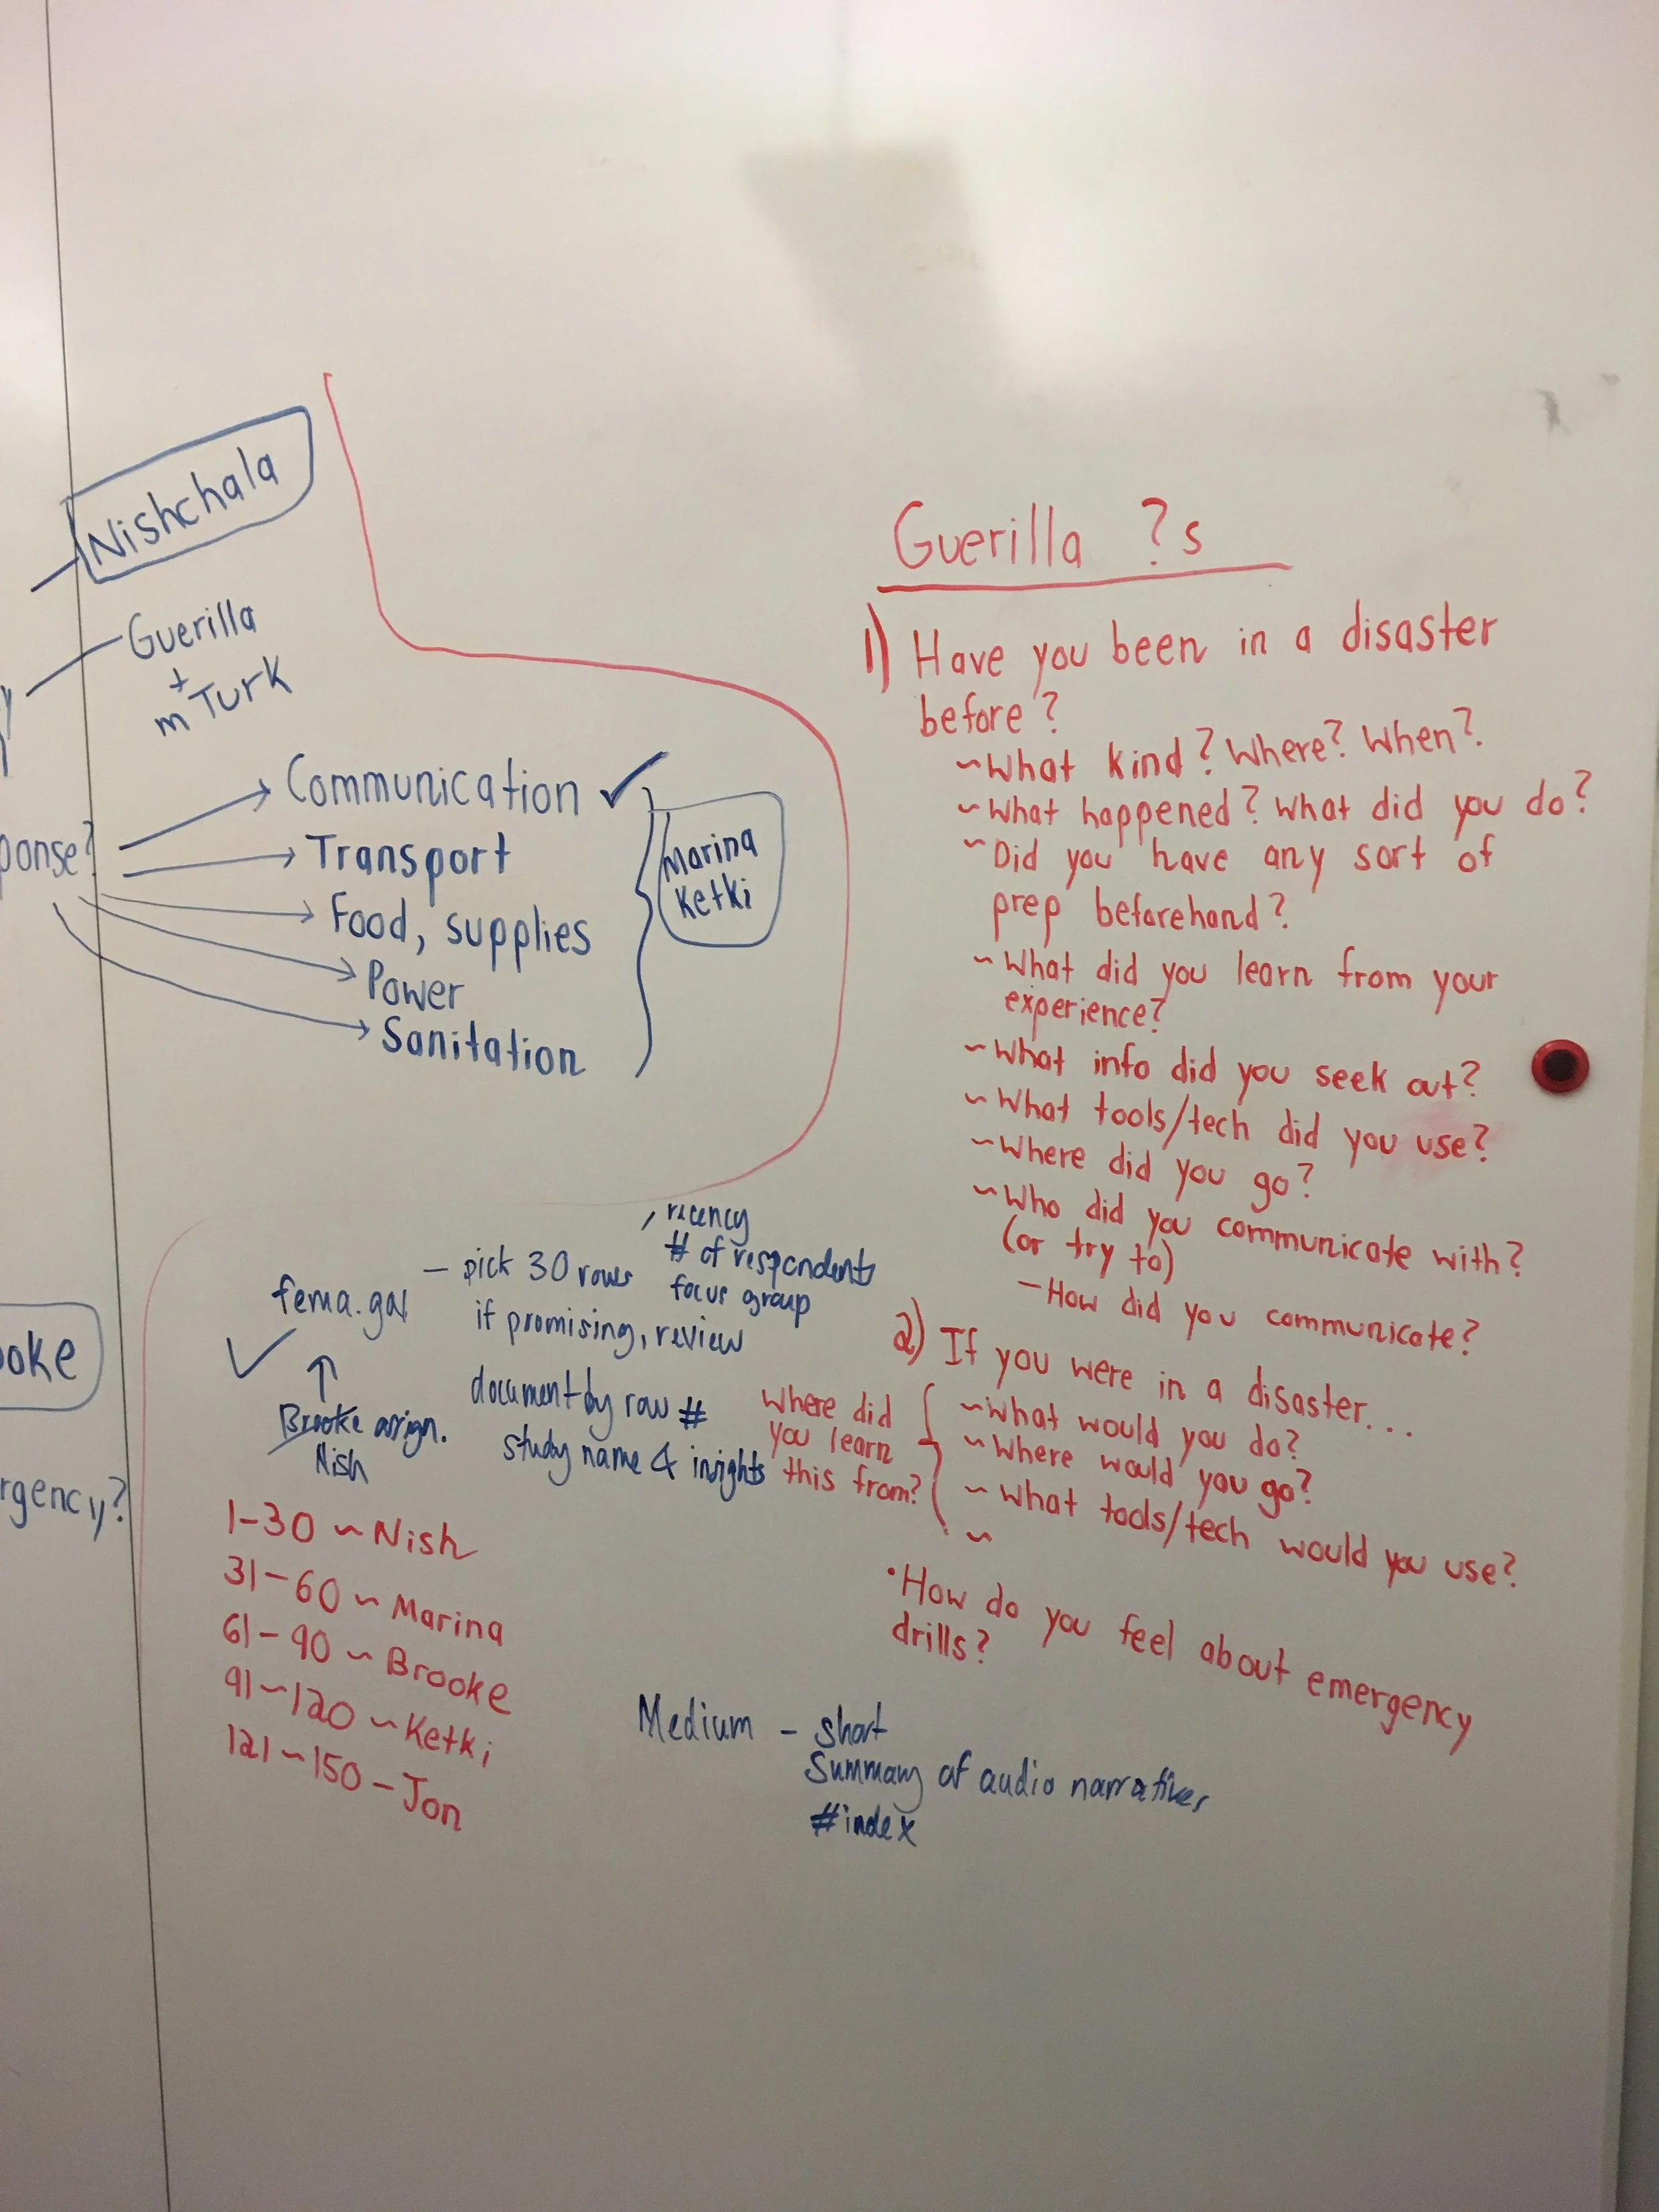 Nishchala
Guerilla
+
mTurk
ponse?
Communication ✓
Transport
Food, supplies
Power
Sanitation
Marina
Ketki
oke
rgency?
fema.gov
✓
↑
Brooke assign.
Nish
– pick 30 rows
if promising, review
recency
# of respondents
focus group
document by row #
study name & insights
1-30 ~ Nish
31-60 ~ Marina
61-90 ~ Brooke
91-120 ~ Ketki
121-150 - Jon
Guerilla ?s
1) Have you been in a disaster
before?
~What kind? Where? When?
~What happened? What did you do?
~Did you have any sort of
prep beforehand?
~What did you learn from your
experience?
~What info did you seek out?
~What tools/tech did you use?
~Where did you go?
~Who did you communicate with?
(or try to)
-How did you communicate?
2) If you were in a disaster...
~What would you do?
~Where would you go?
~What tools/tech would you use?
~
where did
you learn
this from?
•How do you feel about emergency
drills?
Medium - short
Summary of audio narratives
#index